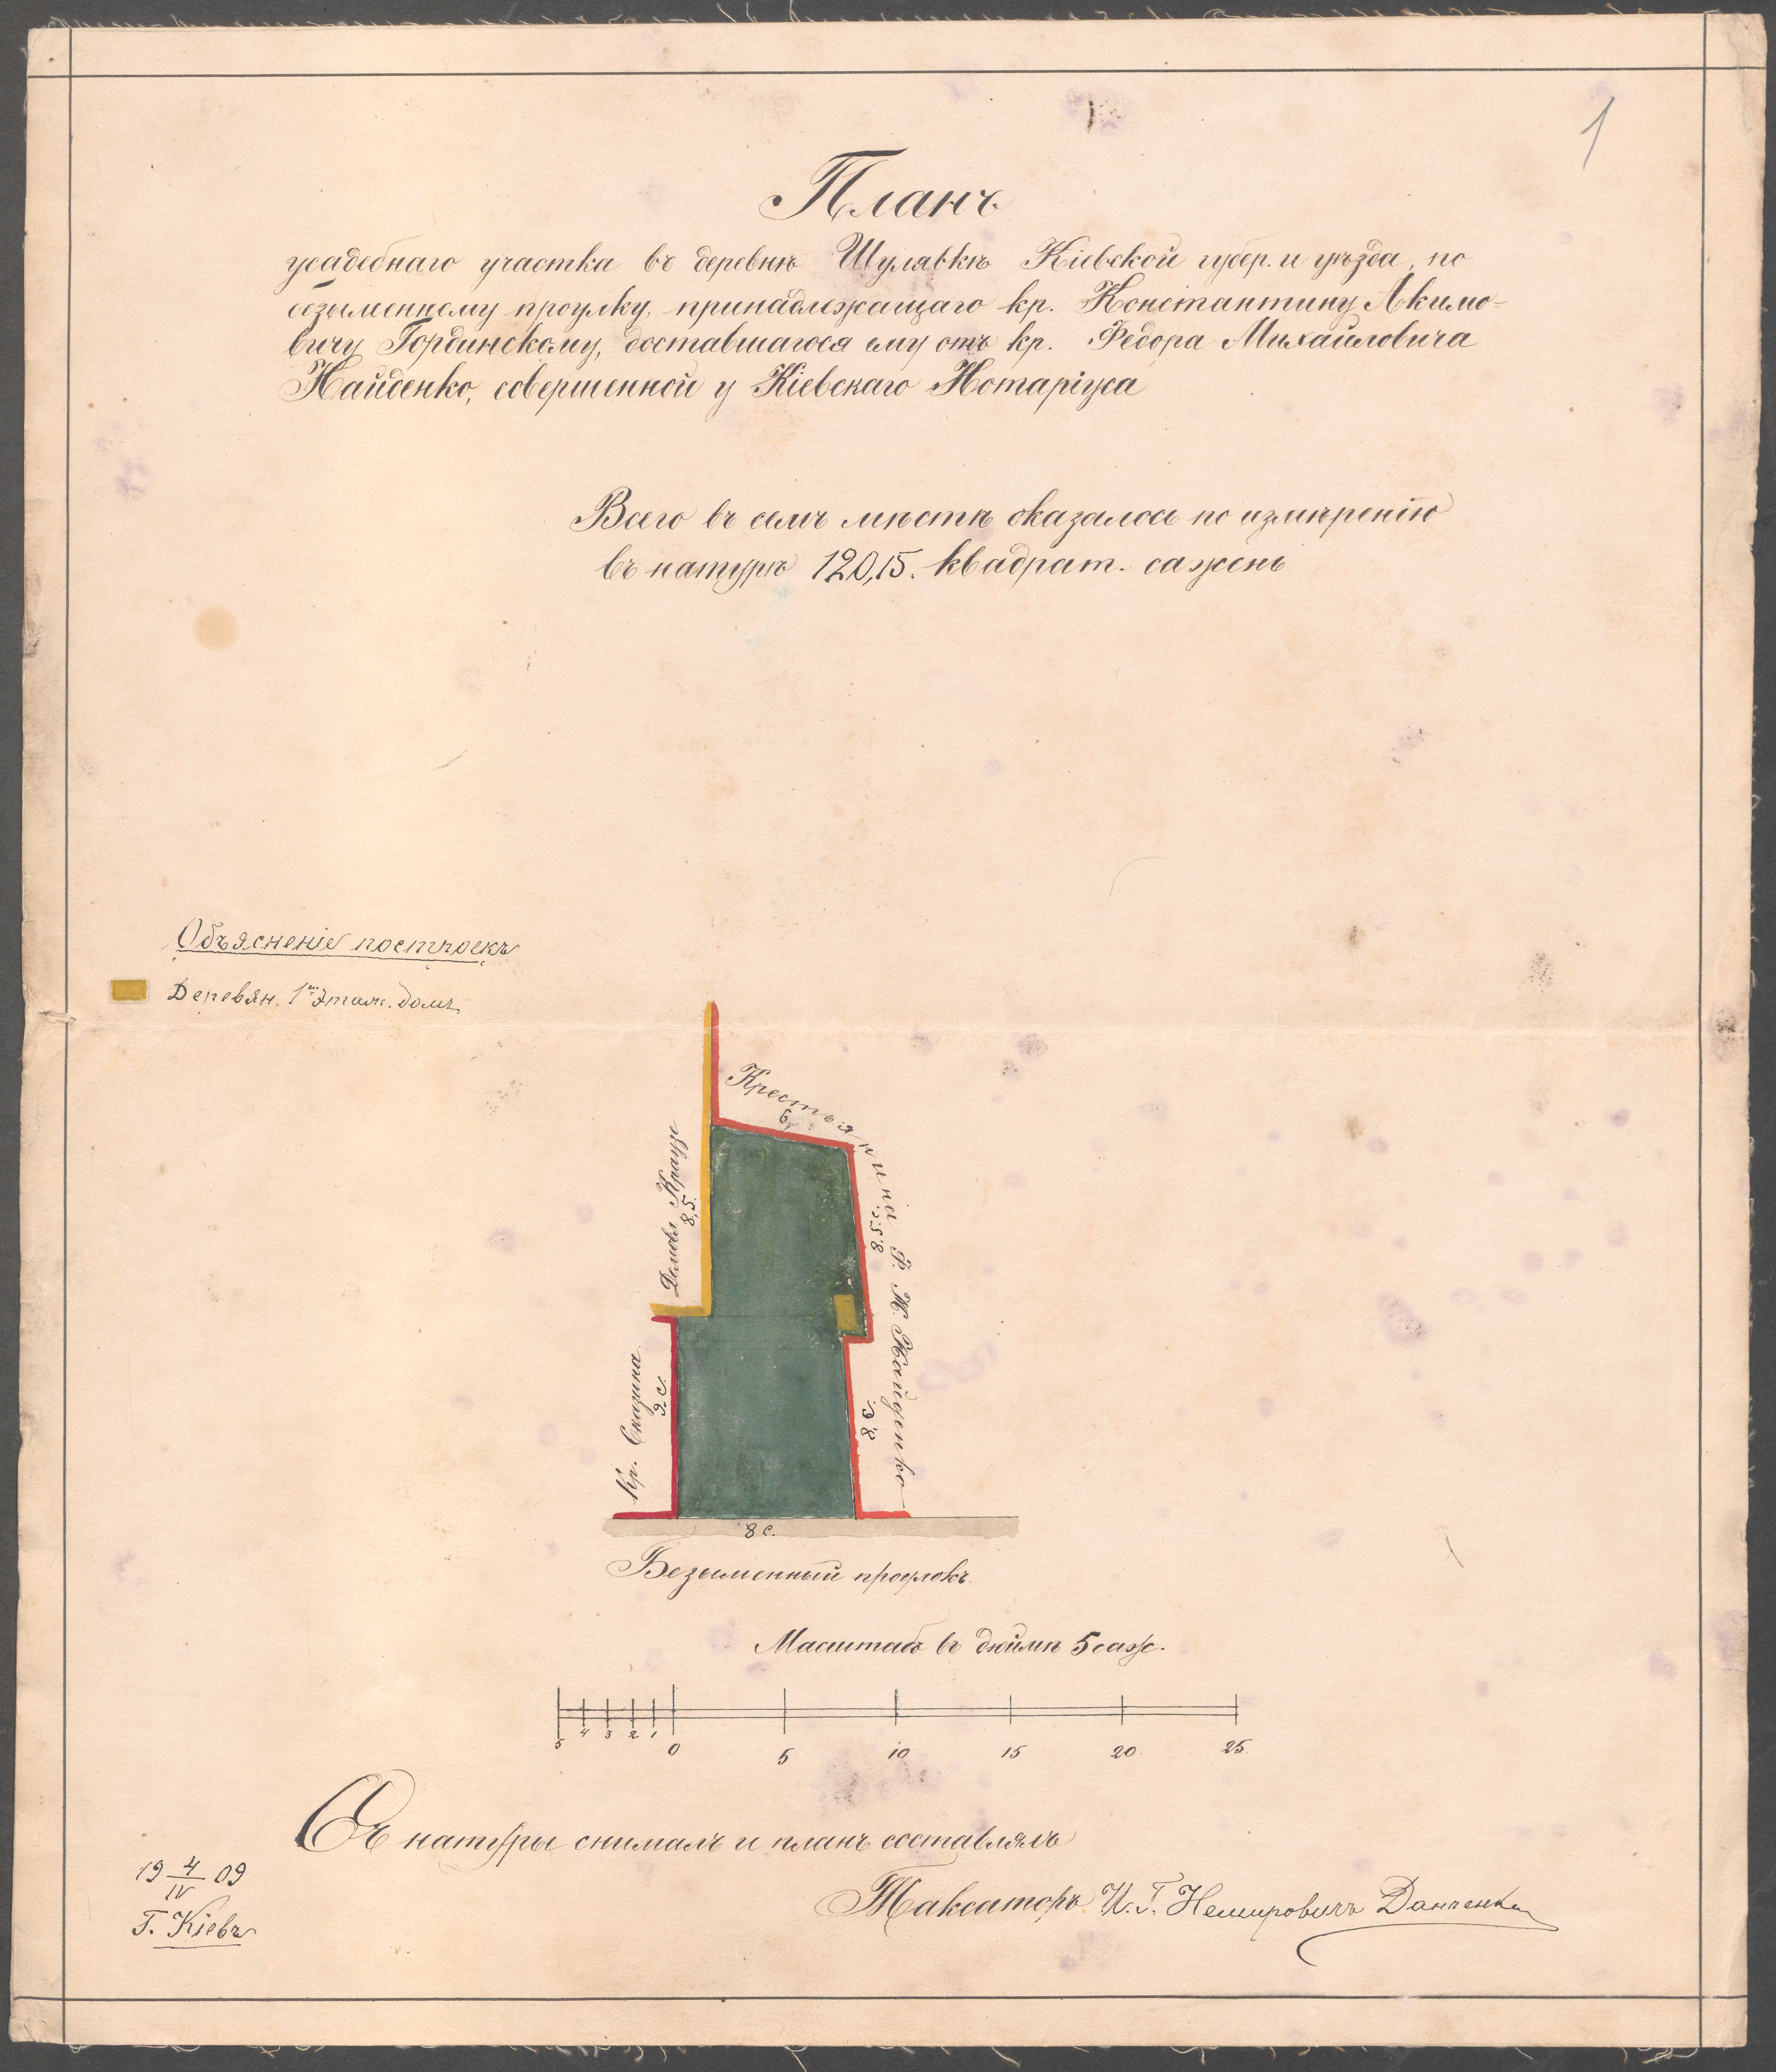 1
Планъ
усадебнаго участка въ деревнѣ Шулявкѣ Кіевской губер. и уѣзда, по
безыменному проулку, принадлежащаго кр. Константину Акимо-
вичу Гординскому, доставшагося ему отъ кр. Федора Михайловича
Найденко, совершенной у Кіевскаго Нотаріуса
Всего въ семъ мѣстѣ оказалось по измѣренію
въ натурѣ 120,15. квадрат. сажень
Объясненіе построекъ
Деревян. 1но этаж. домъ
Крестьянина Ф. М. Найденко
6,
Земля Краузе
8,5.
8.5.с.
Кр. Сказина
9.с.
8.с.
8 с.
Безыменный проулокъ.
Масштабъ въ дюймѣ 5 саж.
5 4 3 2 1 0 5 10 15 20. 25.
Съ натуры снималъ и планъ составлялъ
Таксаторъ И. Г. Немировичъ Данченко
19 4/IV 09
Г. Кіевъ